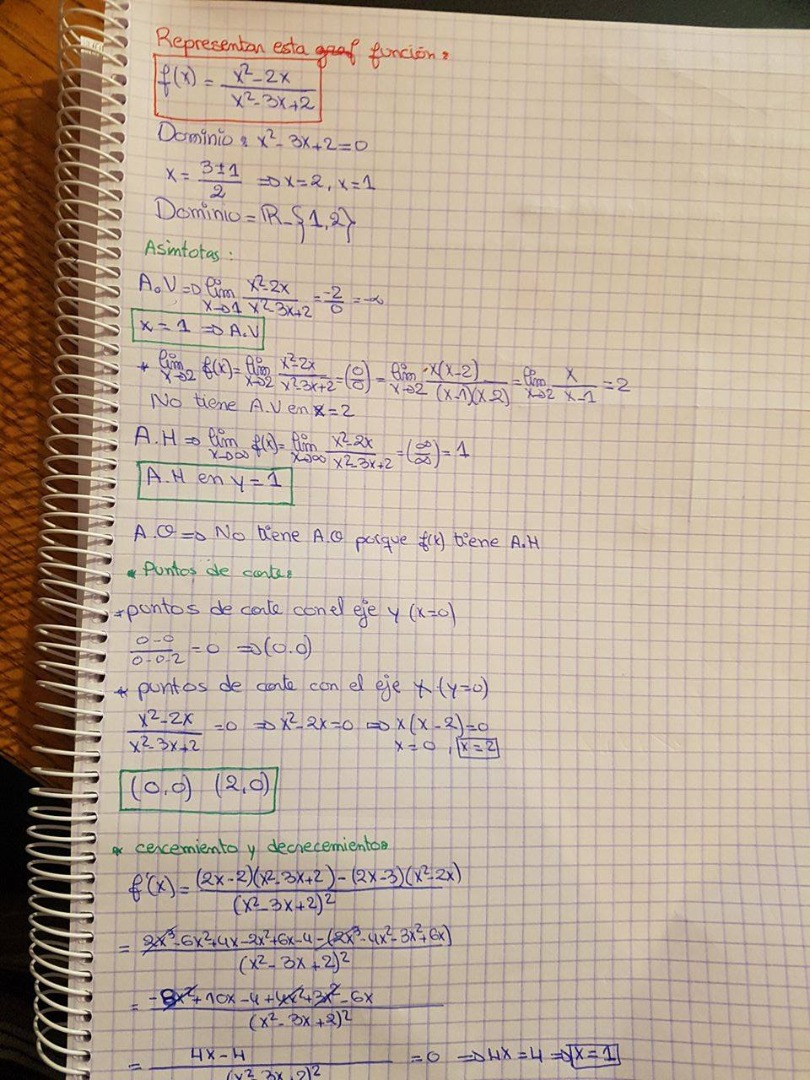 Representar esta función:
f(x) = x²-2x / x²-3x+2
Dominio: x²-3x+2=0
x = 3±1 / 2 ⇒ x=2, x=1
Dominio = R-{1,2}
Asíntotas:
A.V ⇒ lim x→1 x²-2x / x²-3x+2 = -2/0 = -∞
x = 1 ⇒ A.V
* lim x→2 f(x) = lim x→2 x²-2x / x²-3x+2 = (0/0) = lim x→2 x(x-2) / (x-1)(x-2) = lim x→2 x / x-1 = 2
No tiene A.V en x=2
A.H ⇒ lim x→∞ f(x) = lim x→∞ x²-2x / x²-3x+2 = (∞/∞) = 1
A.H en y=1
A.O ⇒ No tiene A.O porque f(x) tiene A.H
* Puntos de corte:
* puntos de corte con el eje y (x=0)
0-0 / 0-0-2 = 0 ⇒ (0.0)
* puntos de corte con el eje x (y=0)
x²-2x / x²-3x+2 = 0 ⇒ x²-2x=0 ⇒ x(x-2)=0
x=0, x=2
(0,0) (2,0)
* cercemiento y decrecemiento:
f'(x) = (2x-2)(x²-3x+2)-(2x-3)(x²-2x) / (x²-3x+2)²
= 2x³-6x²+4x-2x²+6x-4-(2x³-4x²-3x²+6x) / (x²-3x+2)²
= -8x²+10x-4+4x²+3x²-6x / (x²-3x+2)²
= 4x-4 / (x²-3x+2)² = 0 ⇒ 4x=4 ⇒ x=1